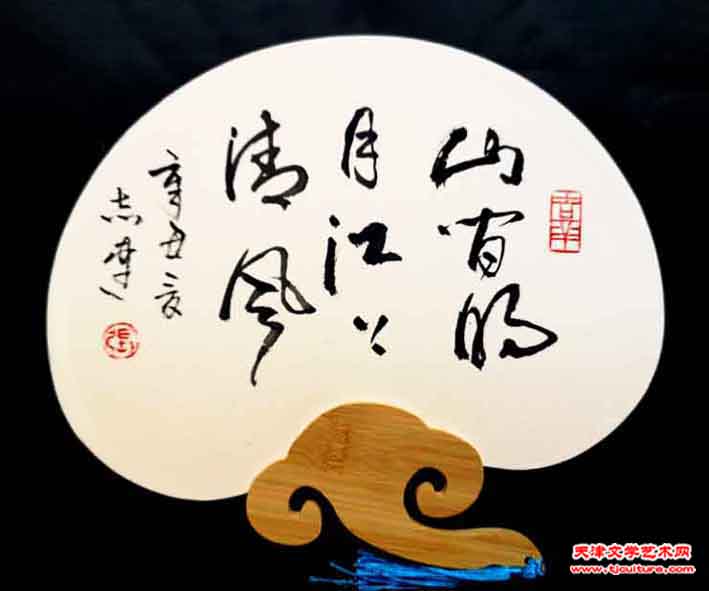 山间明
月江上
清风
辛丑夏
志
張
天津文学艺术网
www.tjculture.com